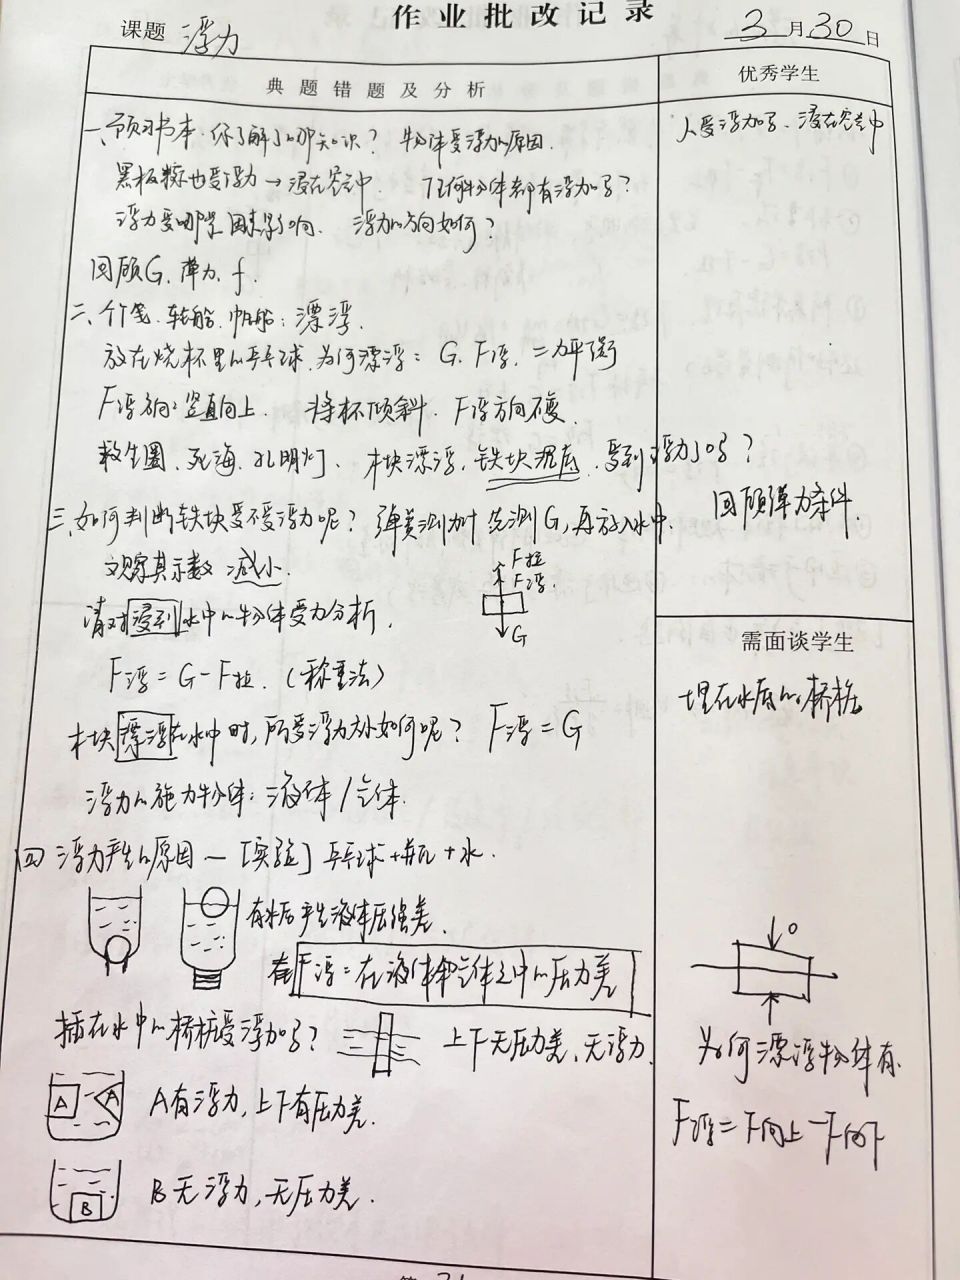 作业批改记录
课题 浮力
3月30日
典题错题及分析
优秀学生
一、预习书本,你了解了哪知识? 物体受浮力的原因.
黑板擦也受浮力→浸在空气中. 任何物体都有浮力吗?
浮力受哪些因素影响. 浮力的方向如何?
回顾G、弹力、f.
二、轮船、帆船:漂浮.
放在烧杯里的乒乓球,为何漂浮:G、F浮、二力平衡
F浮方向:竖直向上. 将杯倾斜. F浮方向不变
救生圈、死海、孔明灯、木块漂浮,铁块沉底,受到浮力了吗?
三、如何判断铁块受不受浮力呢? 弹簧测力计先测G,再放入水中.
观察其示数 减小.
F拉
F浮
G
请对浸到水中的物体受力分析.
F浮=G-F拉.(称重法)
木块漂浮在水中时,所受浮力大小如何呢? F浮=G
浮力的施力物体:液体/气体.
四 浮力产生的原因—[实验]乒乓球+瓶+水.
有水后产生液体压强差.
F浮=在液体和气体之中的压力差
插在水中的桥桩受浮力吗? 上下无压力差、无浮力.
A A
A有浮力,上下有压力差.
B
B无浮力,无压力差.
人受浮力吗、浸在空气中
回顾弹力条件
需面谈学生
埋在水底的桥桩
0
为何漂浮物体有
F浮=F向上-F向下